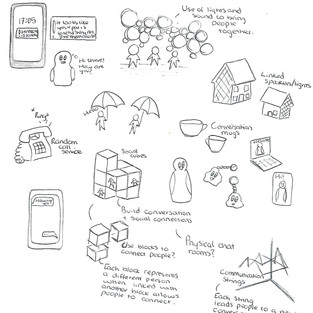 17:05
It looks like
Hi there!
How are
you?
Use of lights and
sound to bring
people
together.
Linked
speakers/lights
*Ring*
Random
call
service
Conversation
mugs
Social
cubes
Hi!
Build conversation
+ social connections
Use blocks to
connect people?
Physical chat
rooms?
Each block represents
a different person
when linked with
another block allows
people to connect.
Communication
Strings
Each string
leads people to a